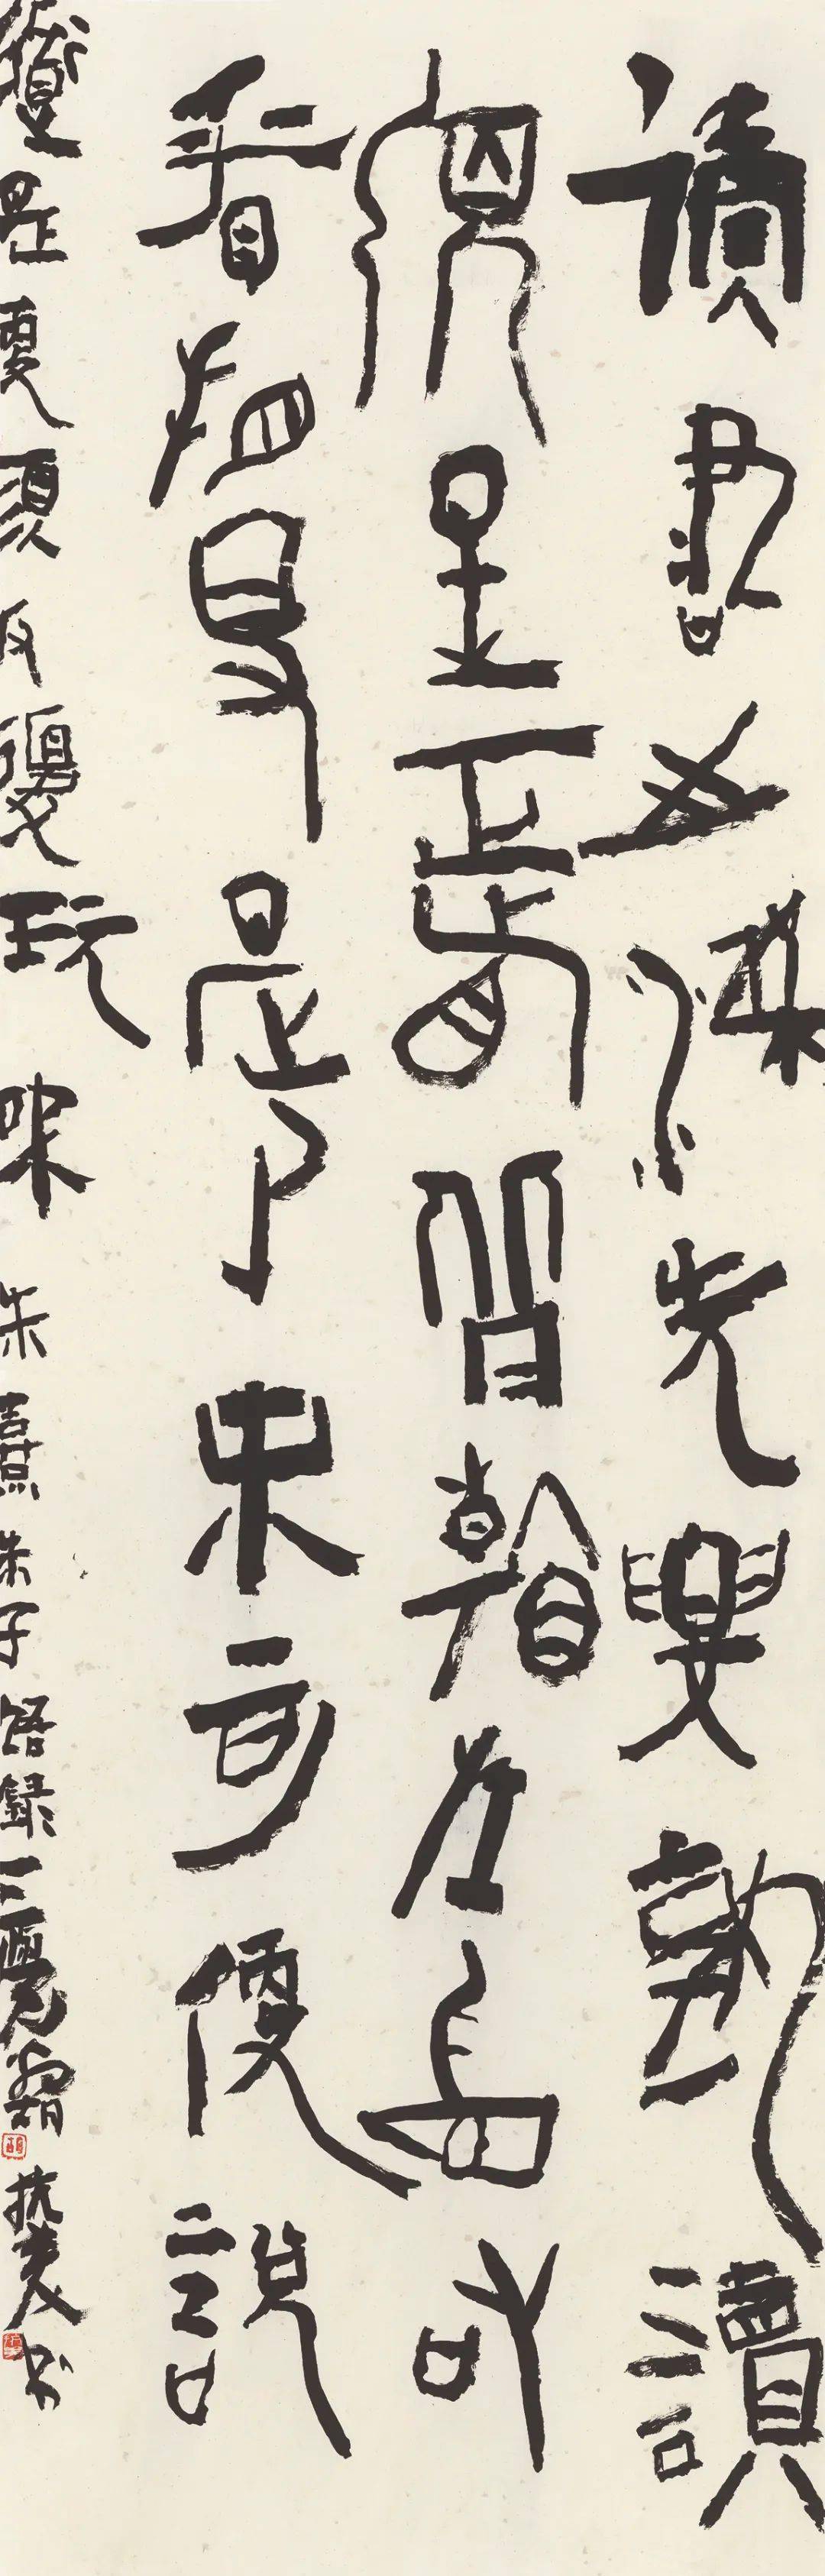 讀書之法先要熟讀
須是正看背看左看右
看看得是了未可便說
道是更須反復玩味 朱熹朱子語錄 書